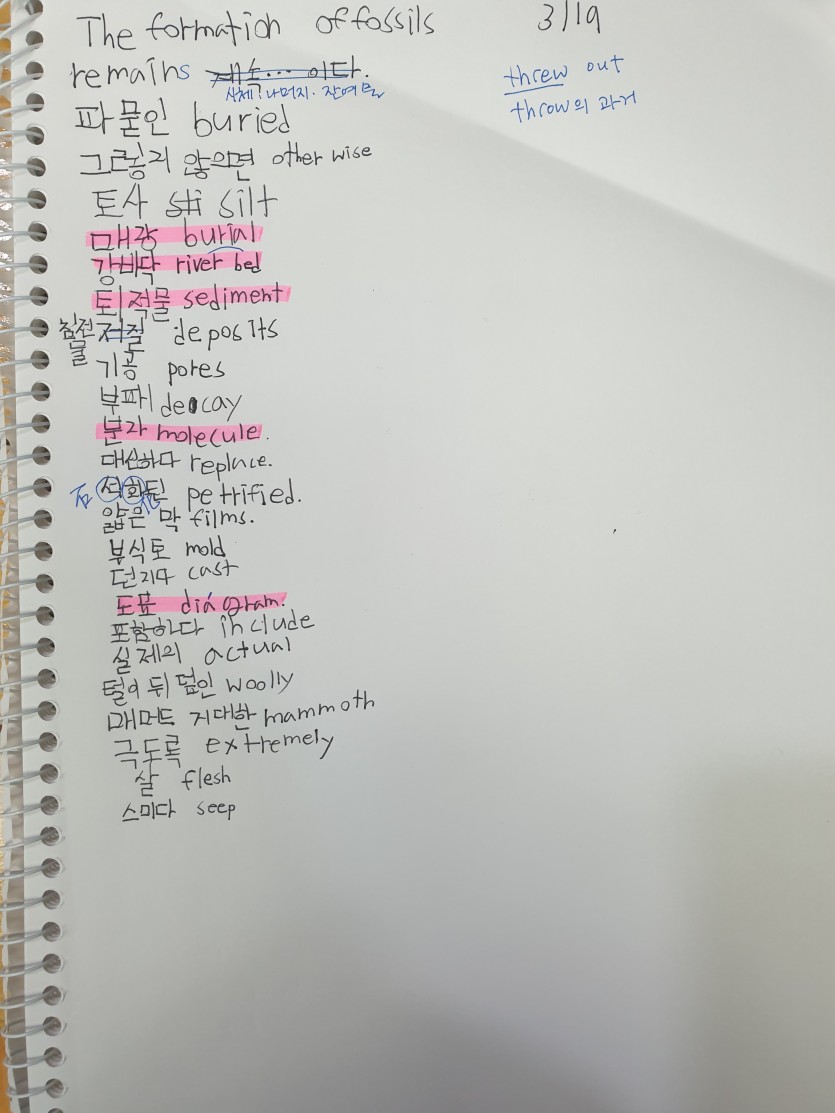 The formation of fossils 3/19
remains 계속... 이다.
시체, 나머지. 잔여물
threw out
throw의 과거
파물인 buried
그렇지 않으면 otherwise
토사 silt
매장 burial
강바닥 river bed
퇴적물 sediment
침전물 저질 deposits
기공 pores
부패 decay
분자 molecule.
대신하다 replace.
석화된 petrified.
얇은 막 films.
부식토 mold
던지다 cast
도표 diagram.
포함하다 include
실제의 actual
털이 뒤덮인 woolly
매머드 거대한 mammoth
극도록 extremely
살 flesh
스미다 seep